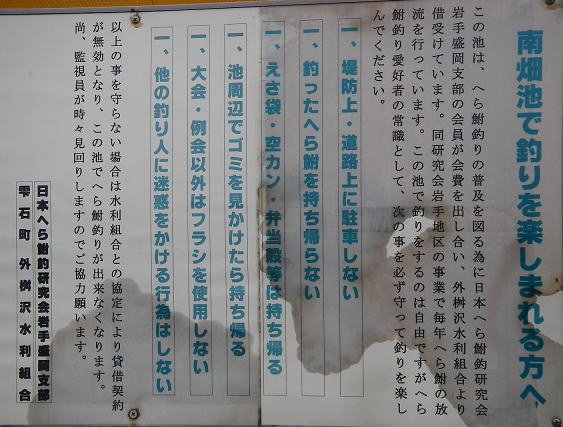 南畑池で釣りを楽しまれる方へ
この池は、へら鮒釣りの普及を図る為に日本へら鮒釣研究会
岩手盛岡支部の会員が会費を出し合い、外桝沢水利組合より
借受けています。同研究会岩手地区の事業で毎年へら鮒の放
流を行っています。この池で釣りをするのは自由ですがへら
鮒釣り愛好者の常識として、次の事を必ず守って釣りを楽し
んでください。
一、堤防上・道路上に駐車しない
一、釣ったへら鮒を持ち帰らない
一、えさ袋・空カン・弁当殻等は持ち帰る
一、池周辺でゴミを見かけたら持ち帰る
一、大会・例会以外はフラシを使用しない
一、他の釣り人に迷惑をかける行為はしない
以上の事を守らない場合は水利組合との協定により貸借契約
が無効となり、この池でへら鮒釣りが出来なくなります。
尚、監視員が時々見回りしますのでご協力願います。
日本へら鮒釣研究会岩手盛岡支部
雫石町 外桝沢水利組合